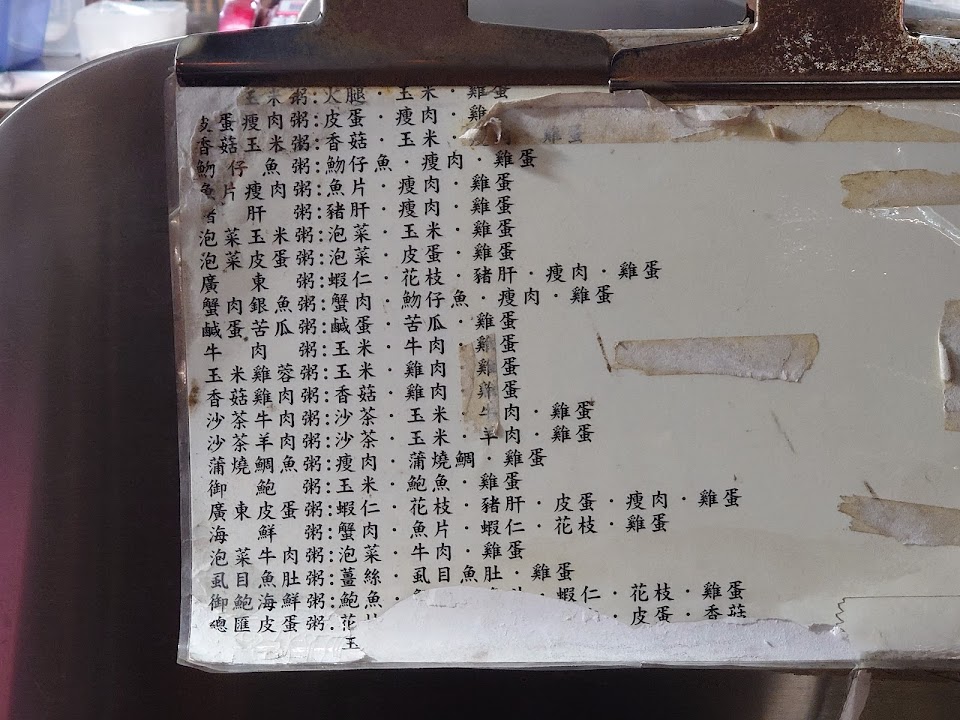 玉米粥:火腿．玉米．雞蛋
皮蛋瘦肉粥:皮蛋．瘦肉．雞
香菇玉米粥:香菇．玉米．肉．雞蛋
魩仔魚粥:魩仔魚．瘦肉．雞蛋
魚片瘦肉粥:魚片．瘦肉．雞蛋
豬肝粥:豬肝．瘦肉．雞蛋
泡菜玉米粥:泡菜．玉米．雞蛋
泡菜皮蛋粥:泡菜．皮蛋．雞蛋
廣東粥:蝦仁．花枝．豬肝．瘦肉．雞蛋
蟹肉銀魚粥:蟹肉．魩仔魚．瘦肉．雞蛋
鹹蛋苦瓜粥:鹹蛋．苦瓜．雞蛋
牛肉粥:玉米．牛肉．雞蛋
玉米雞蓉粥:玉米．雞肉．雞蛋
香菇雞肉粥:香菇．雞肉．雞蛋
沙茶牛肉粥:沙茶．玉米．牛肉．雞蛋
沙茶羊肉粥:沙茶．玉米．羊肉．雞蛋
蒲燒鯛魚粥:瘦肉．蒲燒鯛．雞蛋
御鮑粥:玉米．鮑魚．雞蛋
廣東皮蛋粥:蝦仁．花枝．豬肝．皮蛋．瘦肉．雞蛋
海鮮粥:蟹肉．魚片．蝦仁．花枝．雞蛋
泡菜牛肉粥:泡菜．牛肉．雞蛋
虱目魚肚粥:薑絲．虱目魚肚．雞蛋
御鮑海鮮粥:鮑魚．蝦仁．花枝．雞蛋
總匯皮蛋粥:花．皮蛋．香菇
玉